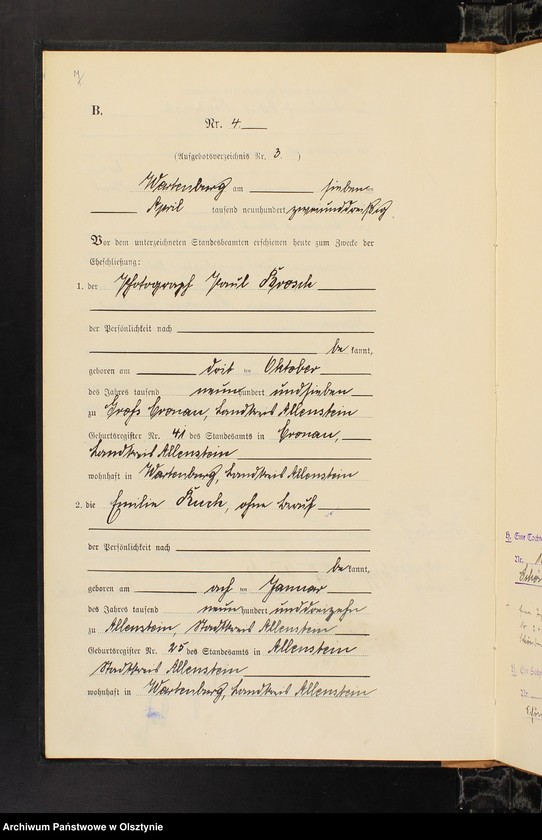 B.
Nr. 4.
(Aufgebotsverzeichnis Nr. 3. )
Wartenburg am sieben
April tausend neunhundert zweiunddreißig.
Vor dem unterzeichneten Standesbeamten erschienen heute zum Zwecke der
Eheschließung:
1. der Photograph Paul
der Persönlichkeit nach
be kannt,
geboren am drit ten Oktober
des Jahres tausend neun hundert undsieben
zu Groß Cronau, Landkreis Allenstein
Geburtsregister Nr. 41 des Standesamts in Cronau,
Landkreis Allenstein
wohnhaft in Wartenburg, Landkreis Allenstein
2. die Emilie, ohne Beruf
der Persönlichkeit nach
be kannt,
geboren am ach ten Januar
des Jahres tausend neun hundert unddreizehn
zu Allenstein, Stadtkreis Allenstein
Geburtsregister Nr. 25 des Standesamts in Allenstein
Stadtkreis Allenstein
wohnhaft in Wartenburg, Landkreis Allenstein
Nr.
Nr.
Archiwum Państwowe w Olsztynie